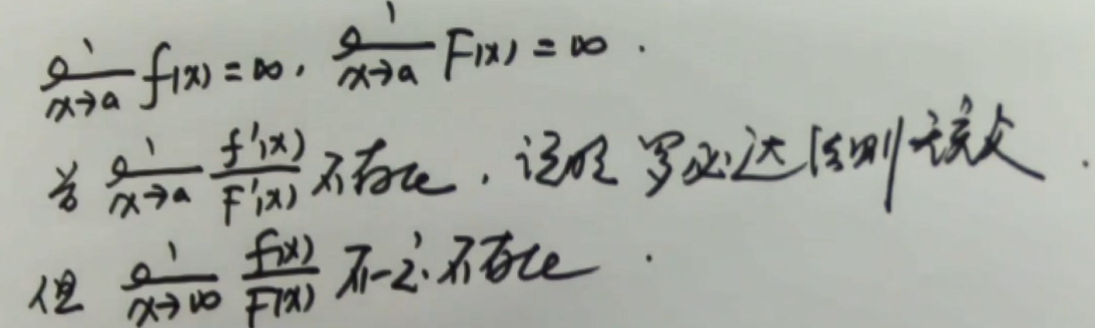 lim x→a f(x) = ∞, lim x→a F(x) = ∞.
若 lim x→a f'(x)/F'(x) 不存在, 说明 罗必达法则无意义.
但 lim x→∞ f(x)/F(x) 不一定不存在.